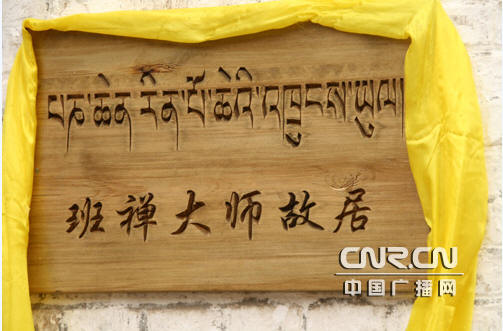 པཎ་ཆེན་རིན་པོ་ཆེའི་འཁྲུངས་ཡུལ།
班禅大师故居
CNR.CN
中国广播网